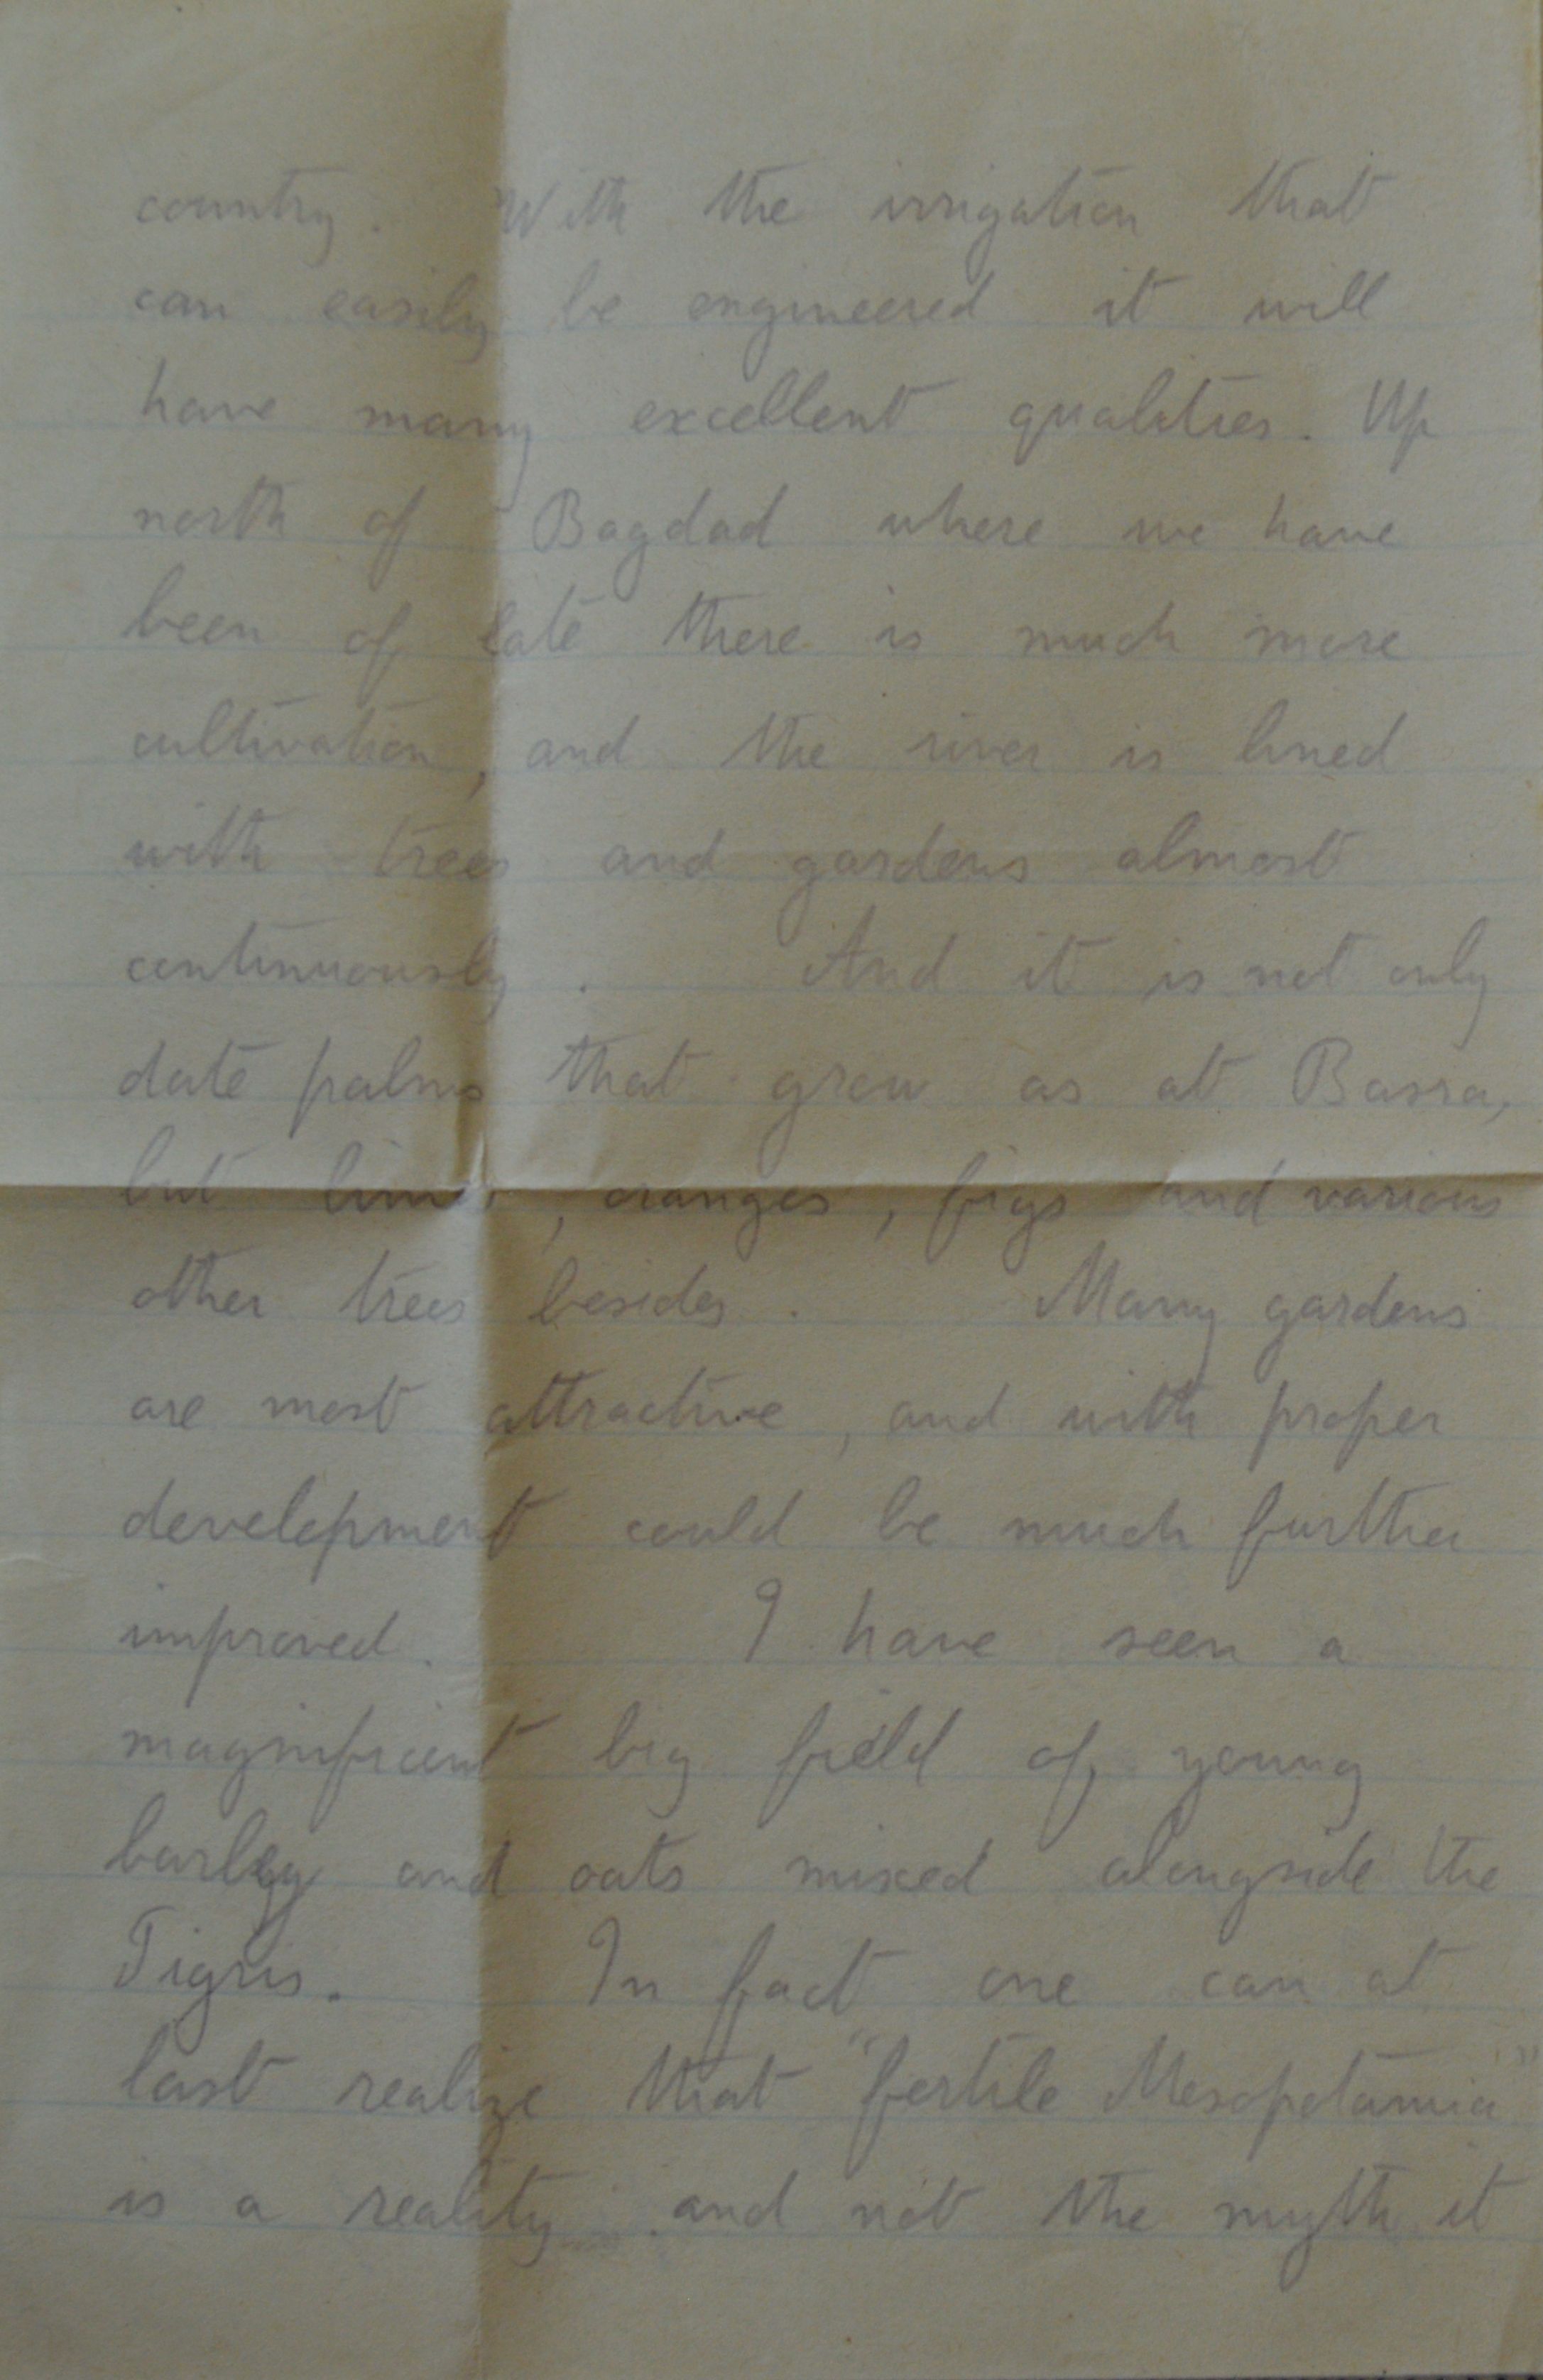 country. With the irrigation that
can easily be engineered it will
have many excellent qualities. Up
north of Bagdad where we have
been of late there is much more
cultivation, and the river is lined
with trees and gardens almost
continuously. And it is not only
date palms that grow as at Basra,
but limes, oranges, figs and various
other trees besides. Many gardens
are most attractive, and with proper
development could be much further
improved. I have seen a
magnificent big field of young
barley and oats mixed alongside the
Tigris. In fact one can at
last realize that "fertile Mesopotamia"
is a reality and not the myth it